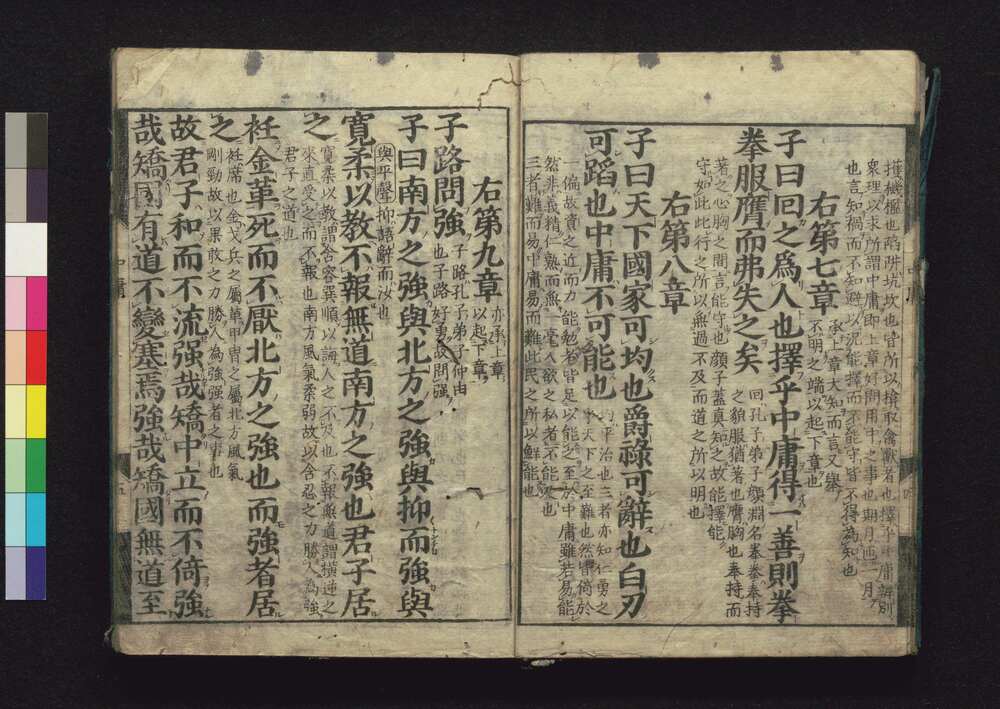 擭機檻也陷阱坑坎也皆所以掩取禽獸者也擇乎中庸辨別
衆理以求所謂中庸即上章好問用中之事也期月匝一月
也言知禍而不知避以況能擇而不能守皆不得為知也
右第七章
承上章大知而言又舉
不明之端以起下章也
子曰回之爲人也擇乎中庸得一善則拳
拳服膺而弗失之矣
回孔子弟子顏淵名拳拳奉持
之貌服猶著也膺胸也奉持而
著之心胸之間言能守也顏子蓋真知之故能擇能
守如此此行之所以無過不及而道之所以明也
右第八章
子曰天下國家可均也爵祿可辭也白刃
可蹈也中庸不可能也
均平治也三者亦知仁勇之
事天下之至難也然皆倚於
一偏故資之近而力能勉者皆足以能之至於中庸雖若易能
然非義精仁熟而無一毫人欲之私者不能及也
三者難而易中庸易而難此民之所以鮮能也
右第九章
亦承上章
以起下章
子路問強
子路孔子弟子仲由
也子路好勇故問強
子曰南方之強與北方之強與抑而強與
與平聲抑語辭而汝也
寛柔以教不報無道南方之強也君子居
之
寛柔以教謂含容巽順以誨人之不及也不報無道謂橫逆之
來直受之而不報也南方風氣柔弱故以含忍之力勝人為強
君子之道也
衽金革死而不厭北方之強也而強者居
之
衽席也金戈兵之屬革甲冑之屬北方風氣
剛勁故以果敢之力勝人為強強者之事也
故君子和而不流强哉矯中立而不倚強
哉矯國有道不變塞焉強哉矯國無道至
中庸
五